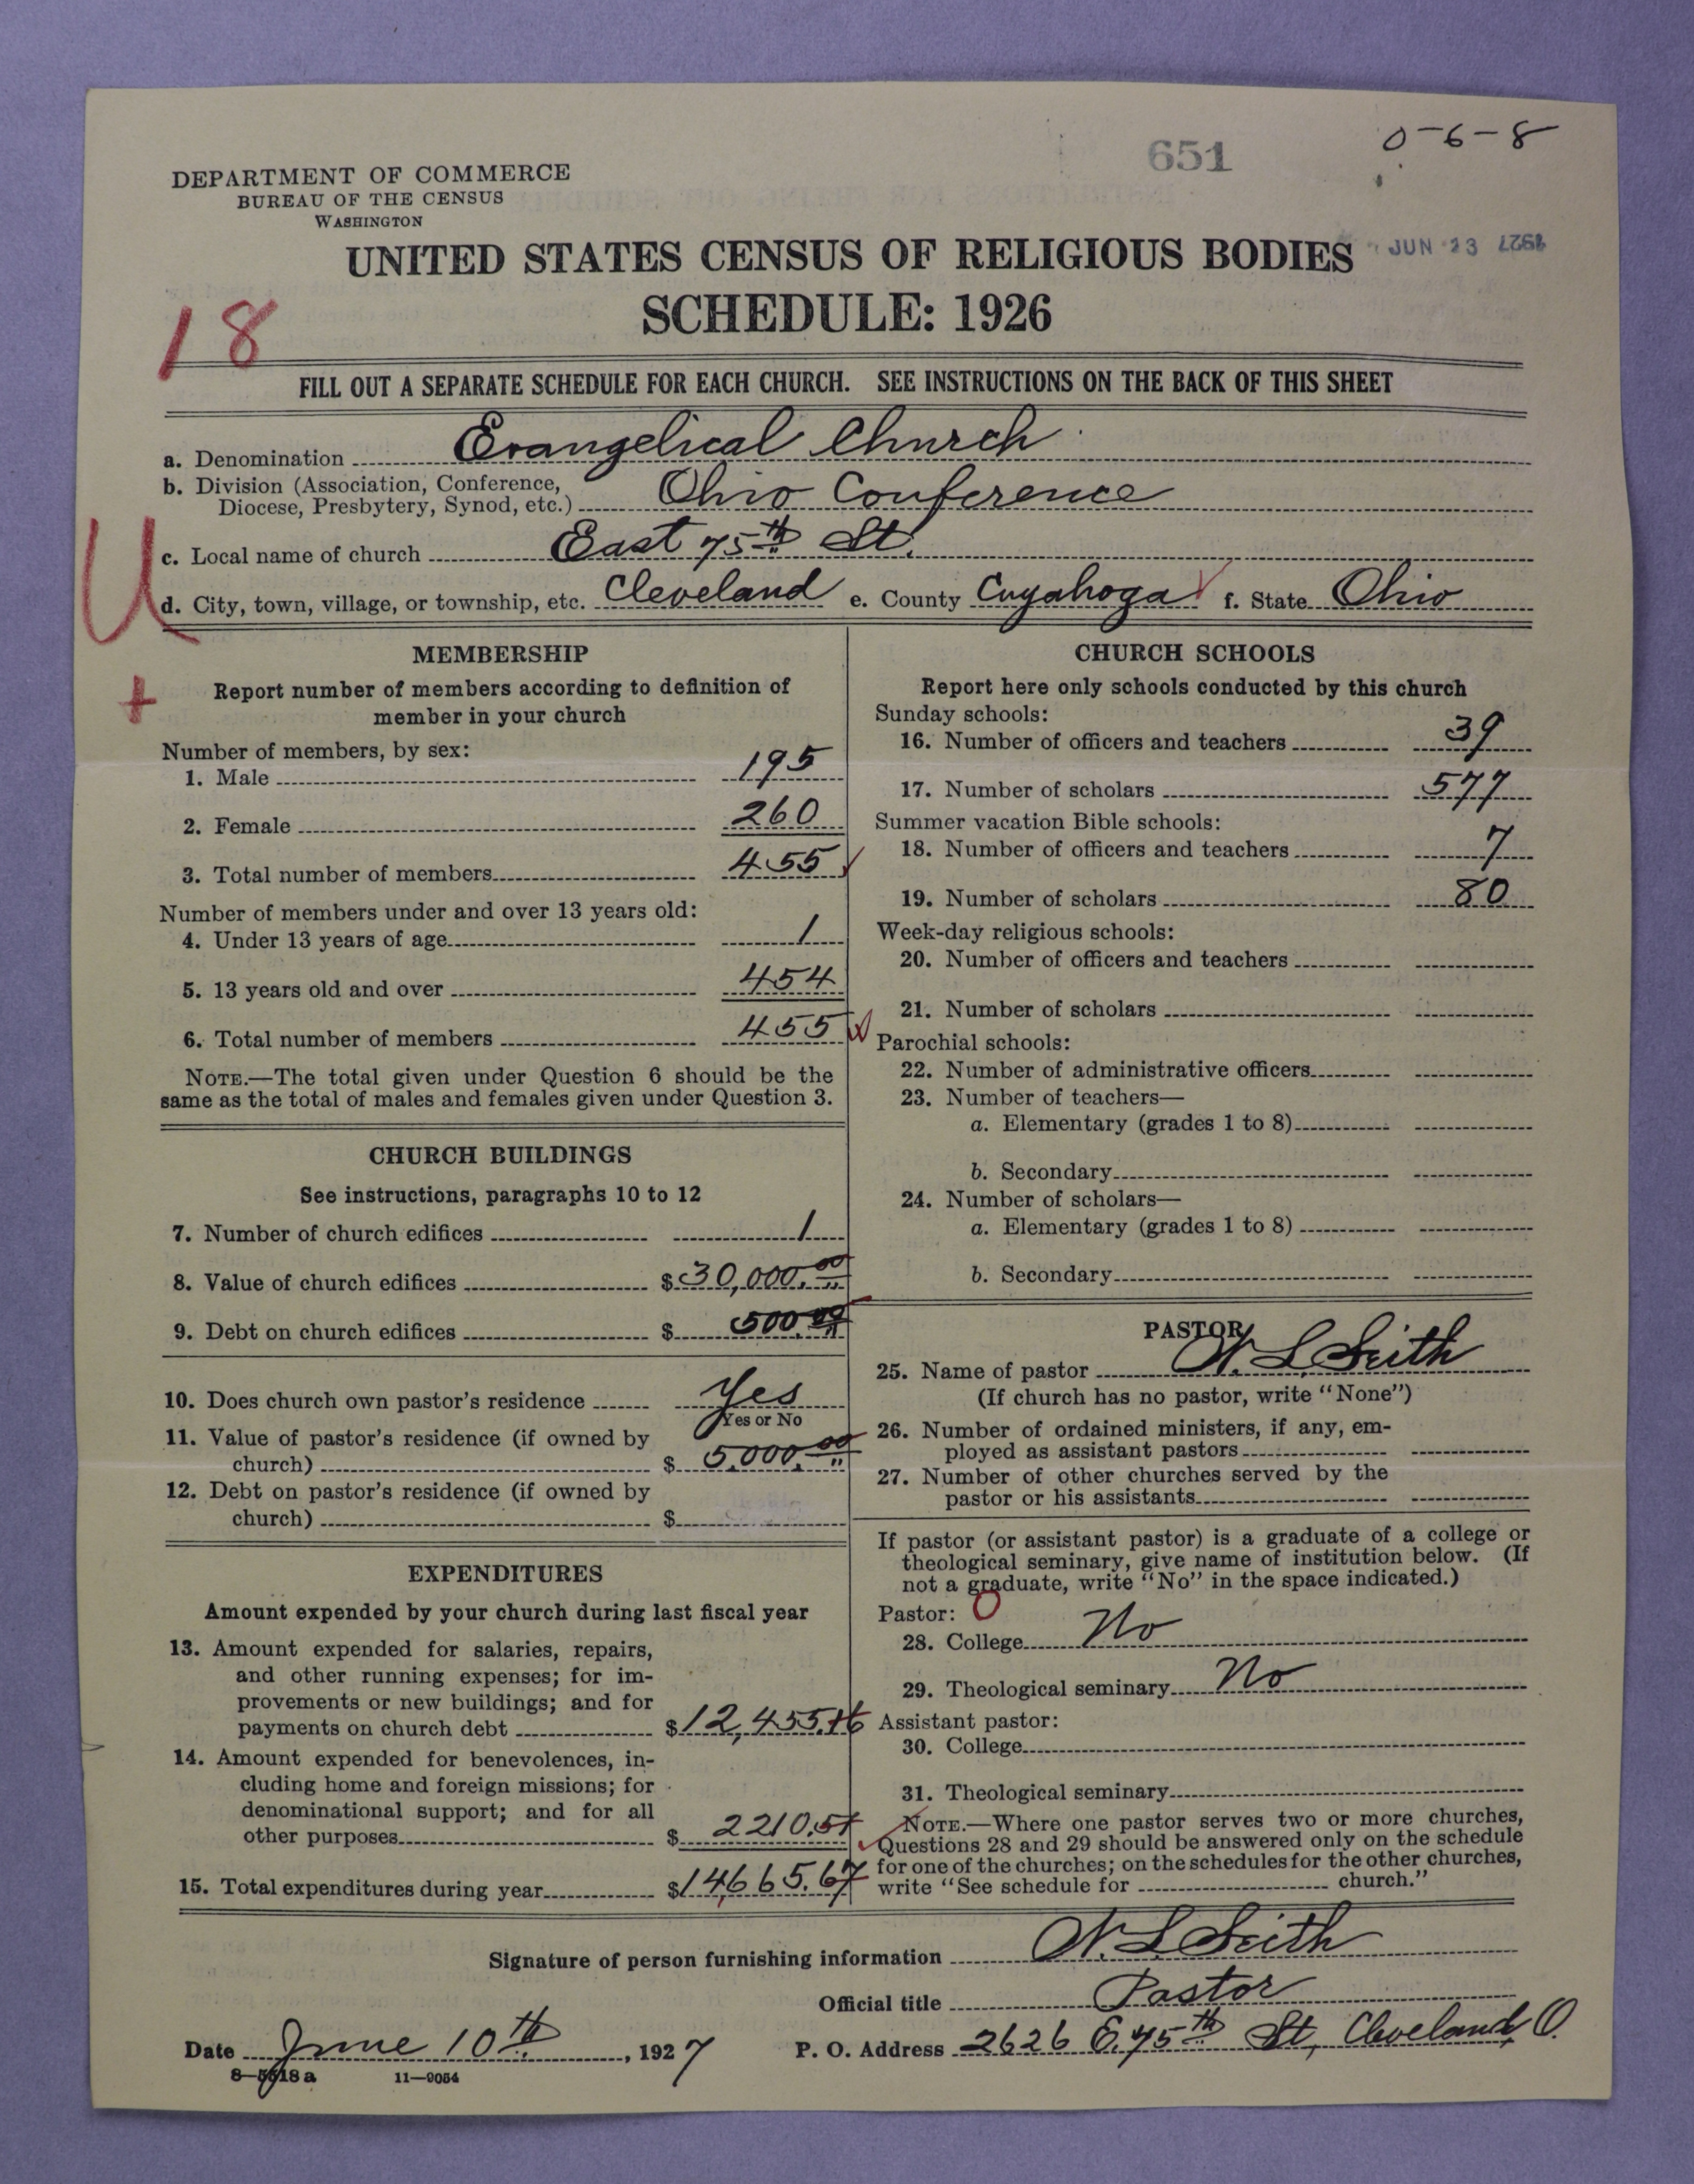 651
0-6-8
DEPARTMENT OF COMMERCE
BUREAU OF THE CENSUS
WASHINGTON
JUN 23 1927
UNITED STATES CENSUS OF RELIGIOUS BODIES
SCHEDULE: 1926
18
FILL OUT A SEPARATE SCHEDULE FOR EACH CHURCH. SEE INSTRUCTIONS ON THE BACK OF THIS SHEET
a. Denomination Evangelical Church
b. Division (Association, Conference,
Diocese, Presbytery, Synod, etc.) Ohio Conference
c. Local name of church East 75th St.
U
d. City, town, village, or township, etc. Cleveland e. County Cuyahoga f. State Ohio
MEMBERSHIP
+
Report number of members according to definition of
member in your church
Number of members, by sex:
1. Male 195
2. Female 260
3. Total number of members 455
Number of members under and over 13 years old:
4. Under 13 years of age 1
5. 13 years old and over 454
6. Total number of members 455
NOTE.—The total given under Question 6 should be the
same as the total of males and females given under Question 3.
CHURCH BUILDINGS
See instructions, paragraphs 10 to 12
7. Number of church edifices 1
8. Value of church edifices $30,000.00
9. Debt on church edifices $500.00
10. Does church own pastor's residence Yes
Yes or No
11. Value of pastor's residence (if owned by
church) $5,000.00
12. Debt on pastor's residence (if owned by
church) $
EXPENDITURES
Amount expended by your church during last fiscal year
13. Amount expended for salaries, repairs,
and other running expenses; for im-
provements or new buildings; and for
payments on church debt $12,455.16
14. Amount expended for benevolences, in-
cluding home and foreign missions; for
denominational support; and for all
other purposes $2210.51
15. Total expenditures during year $14,665.67
CHURCH SCHOOLS
Report here only schools conducted by this church
Sunday schools:
16. Number of officers and teachers 39
17. Number of scholars 577
Summer vacation Bible schools:
18. Number of officers and teachers 7
19. Number of scholars 80
Week-day religious schools:
20. Number of officers and teachers
21. Number of scholars
Parochial schools:
22. Number of administrative officers
23. Number of teachers—
a. Elementary (grades 1 to 8)
b. Secondary
24. Number of scholars—
a. Elementary (grades 1 to 8)
b. Secondary
PASTOR
25. Name of pastor L Seith
(If church has no pastor, write "None")
26. Number of ordained ministers, if any, em-
ployed as assistant pastors
27. Number of other churches served by the
pastor or his assistants
If pastor (or assistant pastor) is a graduate of a college or
theological seminary, give name of institution below. (If
not a graduate, write "No" in the space indicated.)
Pastor: O
28. College No
29. Theological seminary No
Assistant pastor:
30. College
31. Theological seminary
NOTE.—Where one pastor serves two or more churches,
Questions 28 and 29 should be answered only on the schedule
for one of the churches; on the schedules for the other churches,
write "See schedule for church."
Signature of person furnishing information L Seith
Official title Pastor
Date June 10th, 1927 P. O. Address 2626 E. 75th St, Cleveland, O.
8—5518 a 11—9054